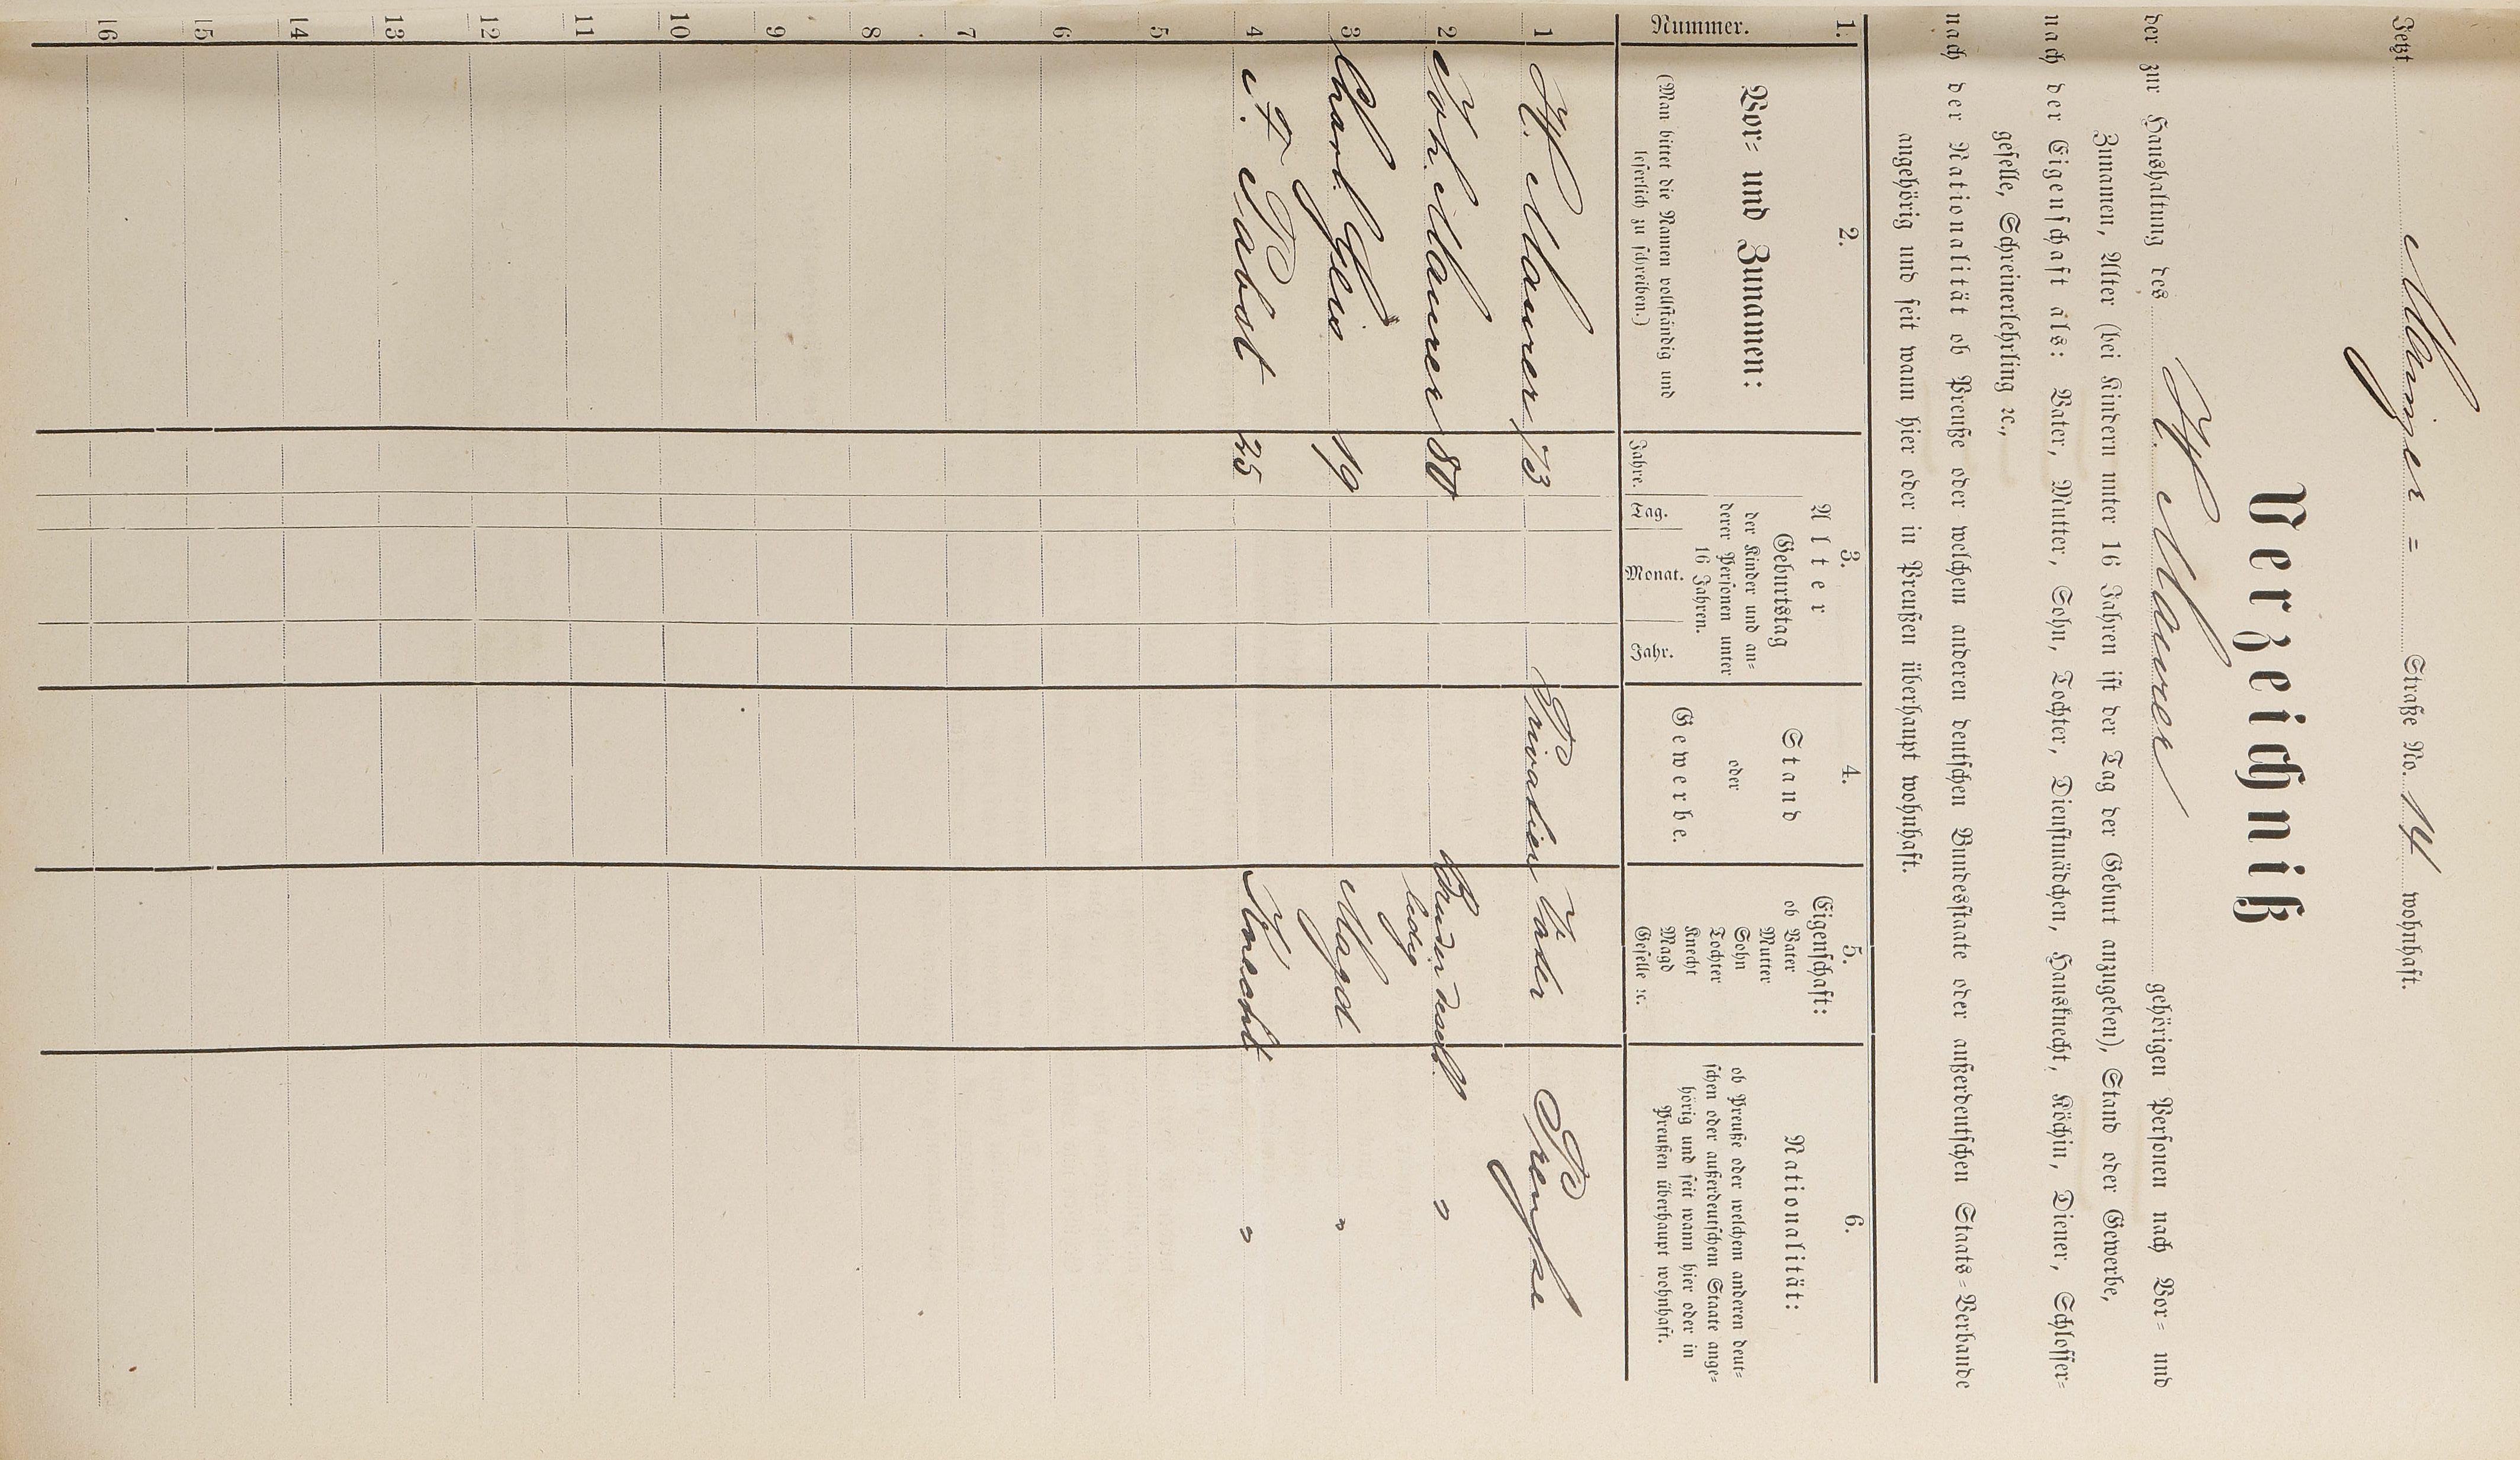 Jetzt Mainzer = Straße No. 14 wohnhaft.
Verzeichniß
der zur Haushaltung des H. Maurer gehörigen Personen nach Vor= und
Zunamen, Alter (bei Kindern unter 16 Jahren ist der Tag der Geburt anzugeben), Stand oder Gewerbe,
nach der Eigenschaft als: Vater, Mutter, Sohn, Tochter, Dienstmädchen, Hausknecht, Köchin, Diener, Schlosser=
geselle, Schreinerlehrling ꝛc.,
nach der Nationalität ob Preuße oder welchem anderen deutschen Bundesstaate oder außerdeutschen Staats=Verbande
angehörig und seit wann hier oder in Preußen überhaupt wohnhaft.
1. 2. 3. 4. 5. 6.
Nummer.
Vor= und Zunamen:
(Man bittet die Namen vollständig und
leserlich zu schreiben.)
Alter
Jahre.
Geburtstag
der Kinder und an=
derer Personen unter
16 Jahren.
Tag. Monat. Jahr.
Stand
oder
Gewerbe.
Eigenschaft:
ob Vater
Mutter
Sohn
Tochter
Knecht
Magd
Geselle ꝛc.
Nationalität:
ob Preuße oder welchem anderen deut=
schen oder außerdeutschem Staate ange=
hörig und seit wann hier oder in
Preußen überhaupt wohnhaft.
1 H. Maurer 73 Privatier Vader Preuße
2 Joh. Maurer 80 Bruder dessll. "
ledig
3 Charl. 19 Magd "
4 Pabst 25 Knecht "
5
6
7
8
9
10
11
12
13
14
15
16